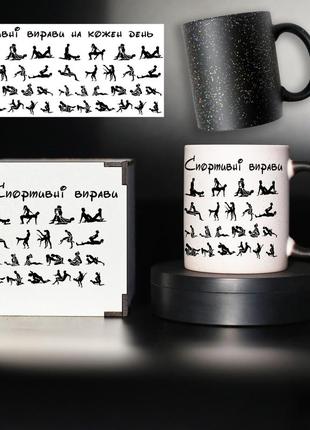 вні вправи на кожен день
Спортивні вправи
Спортивні вправи